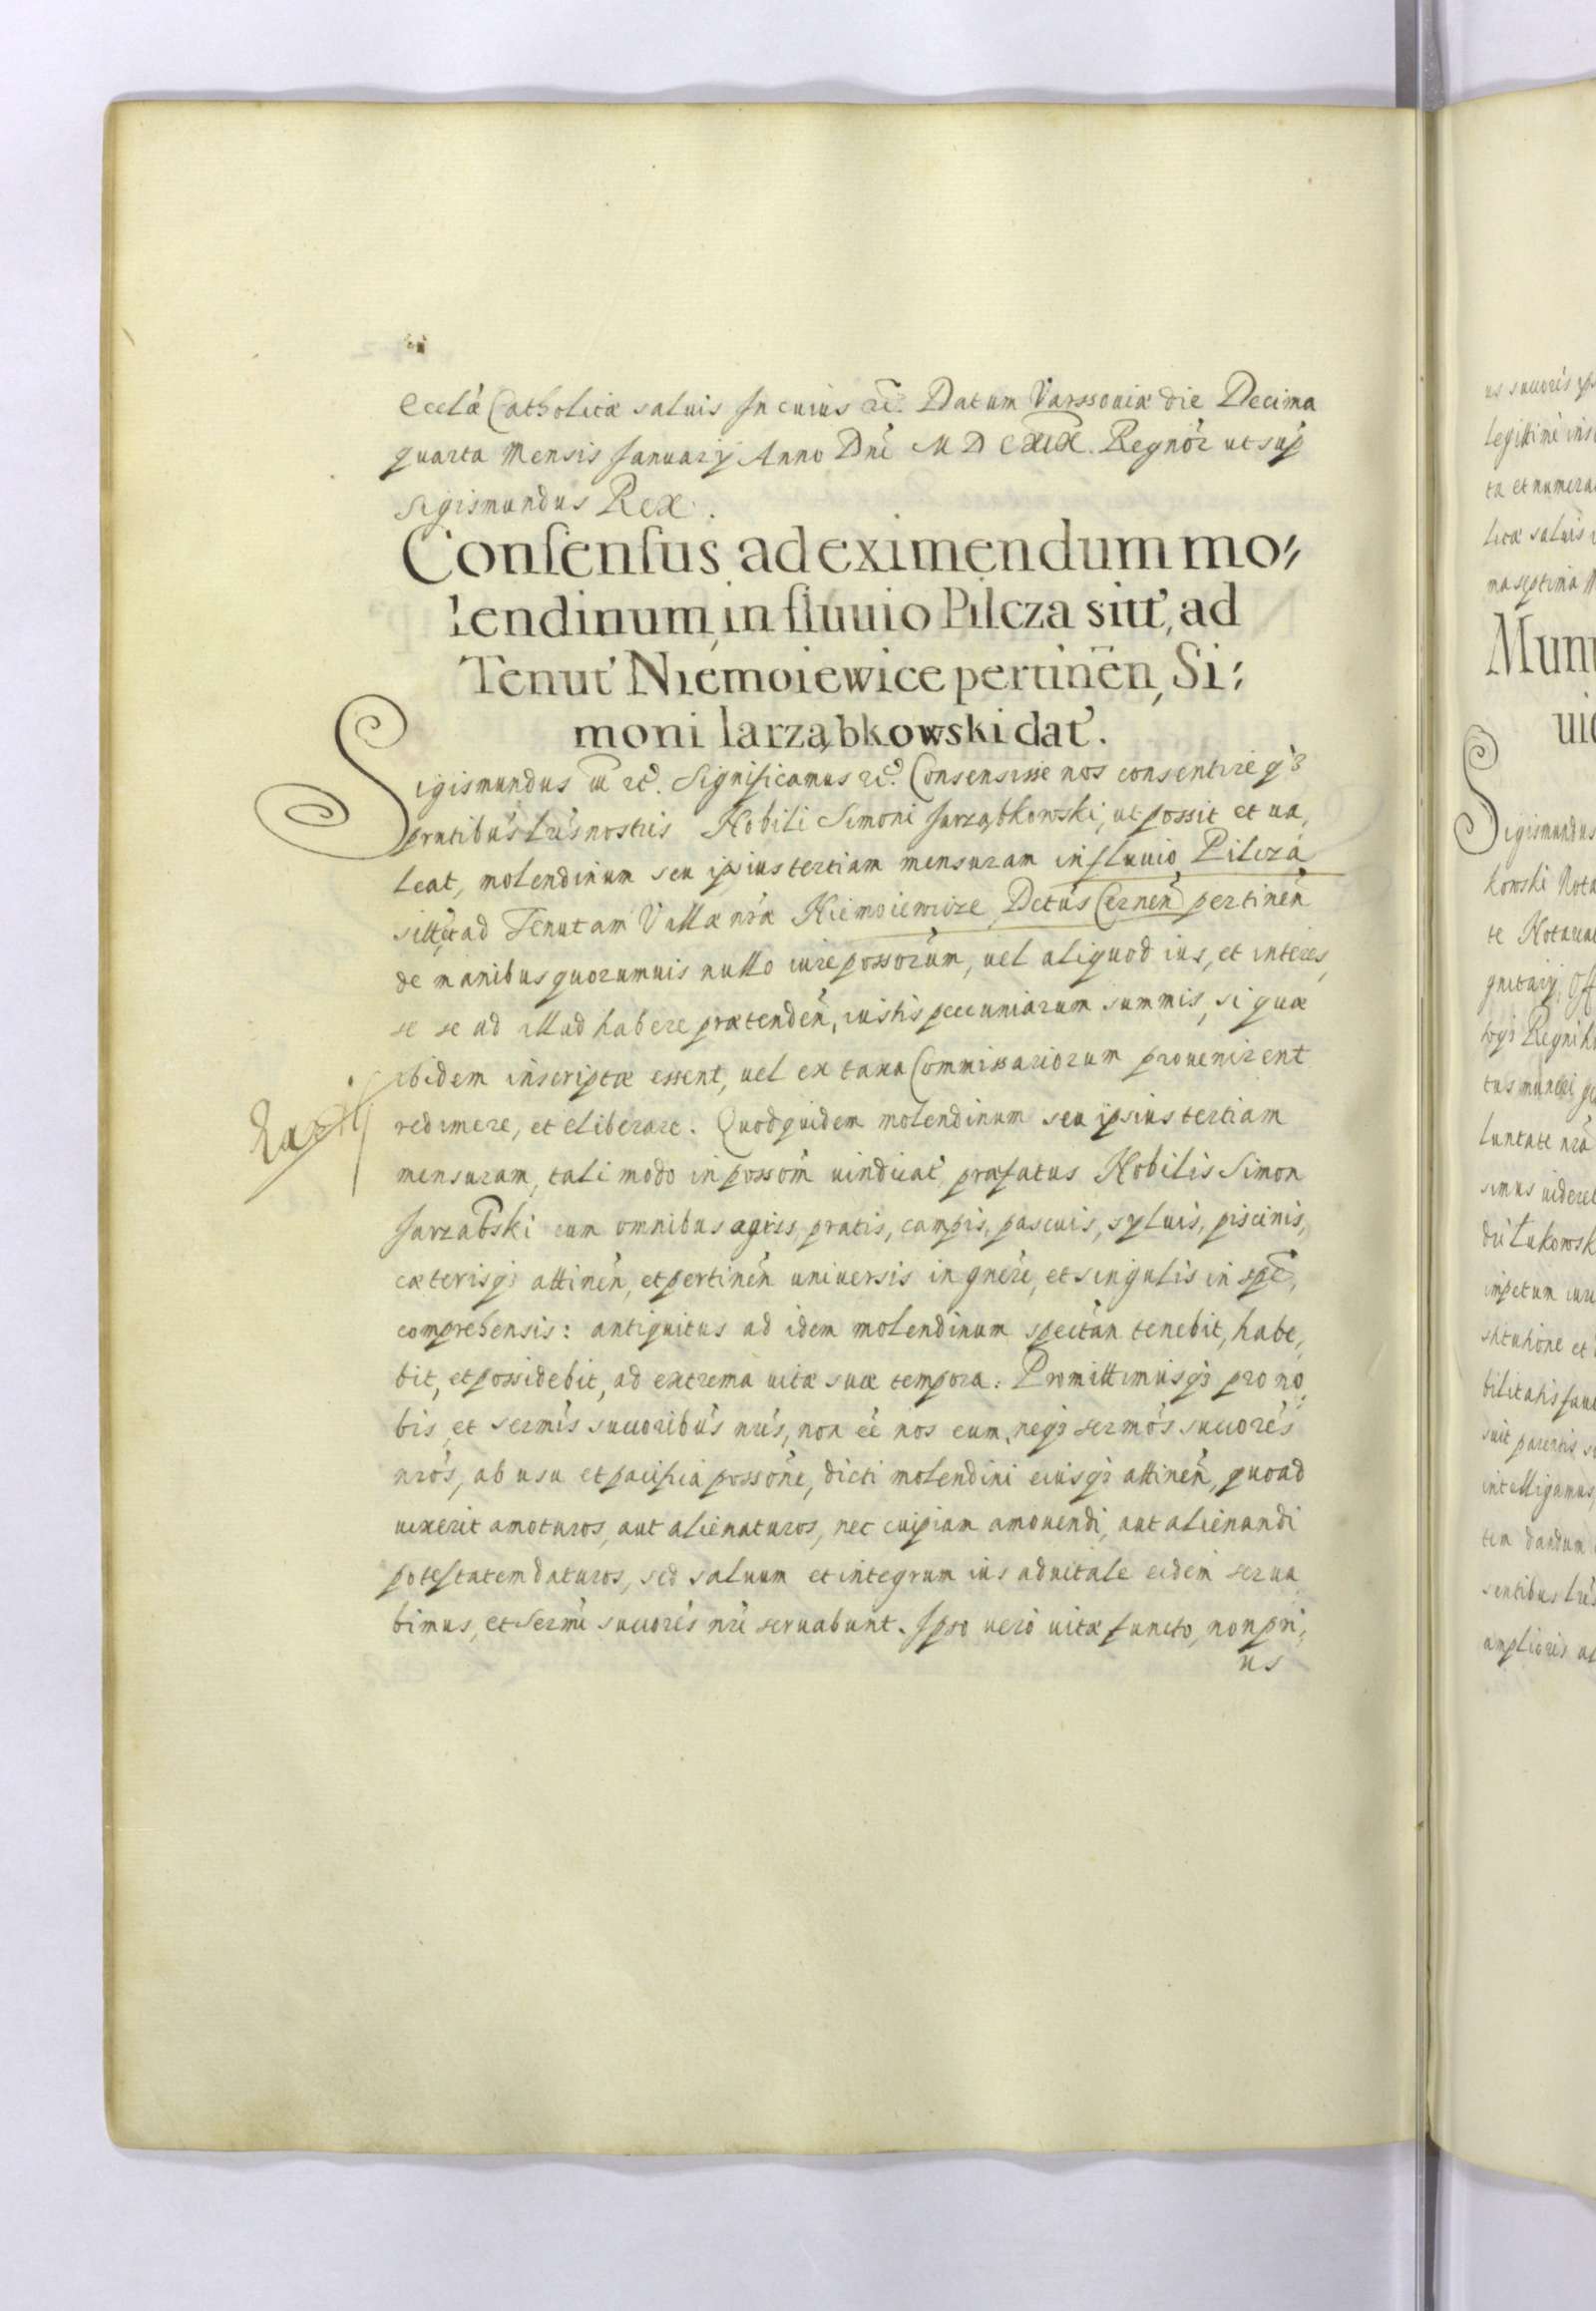 Ecclæ Catholicæ saluis In cuius rei. Datum Varssouiæ die Decima
quarta Mensis Januarÿ Anno Dni M D CXIX. Regnor ut sup
Sigismundus Rex.
Consensus ad eximendum mo⸗
lendinum, in fluuio Pilcza sitt', ad
Tenut' Niemoiewice pertinen, Si⸗
moni Iarząbkowski dat'.
Sigismundus iii rc. Significamus rc. Consensisse nos consentire q3
pntibus lris nostris Nobili Simoni Jarząbkowski, ut possit et ua,
leat, molendinum seu ipsius tertiam mensuram in fluuio Pilcza
situ, ad Tenutam Villæ nræ Niemoiewice, Dctus Cernen pertinen
de manibus quorumuis nullo iure possorum, uel aliquod ius, et interes,
se se ad illud habere prætenden, iustis pecuniarum summis, si quæ
ibidem inscriptæ essent, uel ex taxa Commissariorum prouenirent
redimere, et eliberare. Quod quidem molendinum seu ipsius tertiam
mensuram, tali modo in possom uindicat, præfatus Nobilis Simon
Jarzabski cum omnibus agris, pratis, campis, pascuis, syluis, piscinis,
cæterisq3 attinen, et pertinen uniuersis in gnere, et singulis in spe,
comprehensis: antiquitus ad idem molendinum spectan tenebit, habe,
bit, et possidebit, ad extrema uitæ suæ tempora: Promittimusq3 pro no,
bis, et sermis succoribus nris, non ee nos eum, neq3 sermos succores
nros, ab usu et pacifica possone, dicti molendini eiusq3 attinen, quoad
uixerit amoturos, aut alienaturos, nec cuipiam amouendi, aut alienandi
potestatem daturos, sed saluum et integrum ius aduitale eidem serua
bimus, et sermi succores nri seruabunt. Ipso uero uita functo, non pri,
us